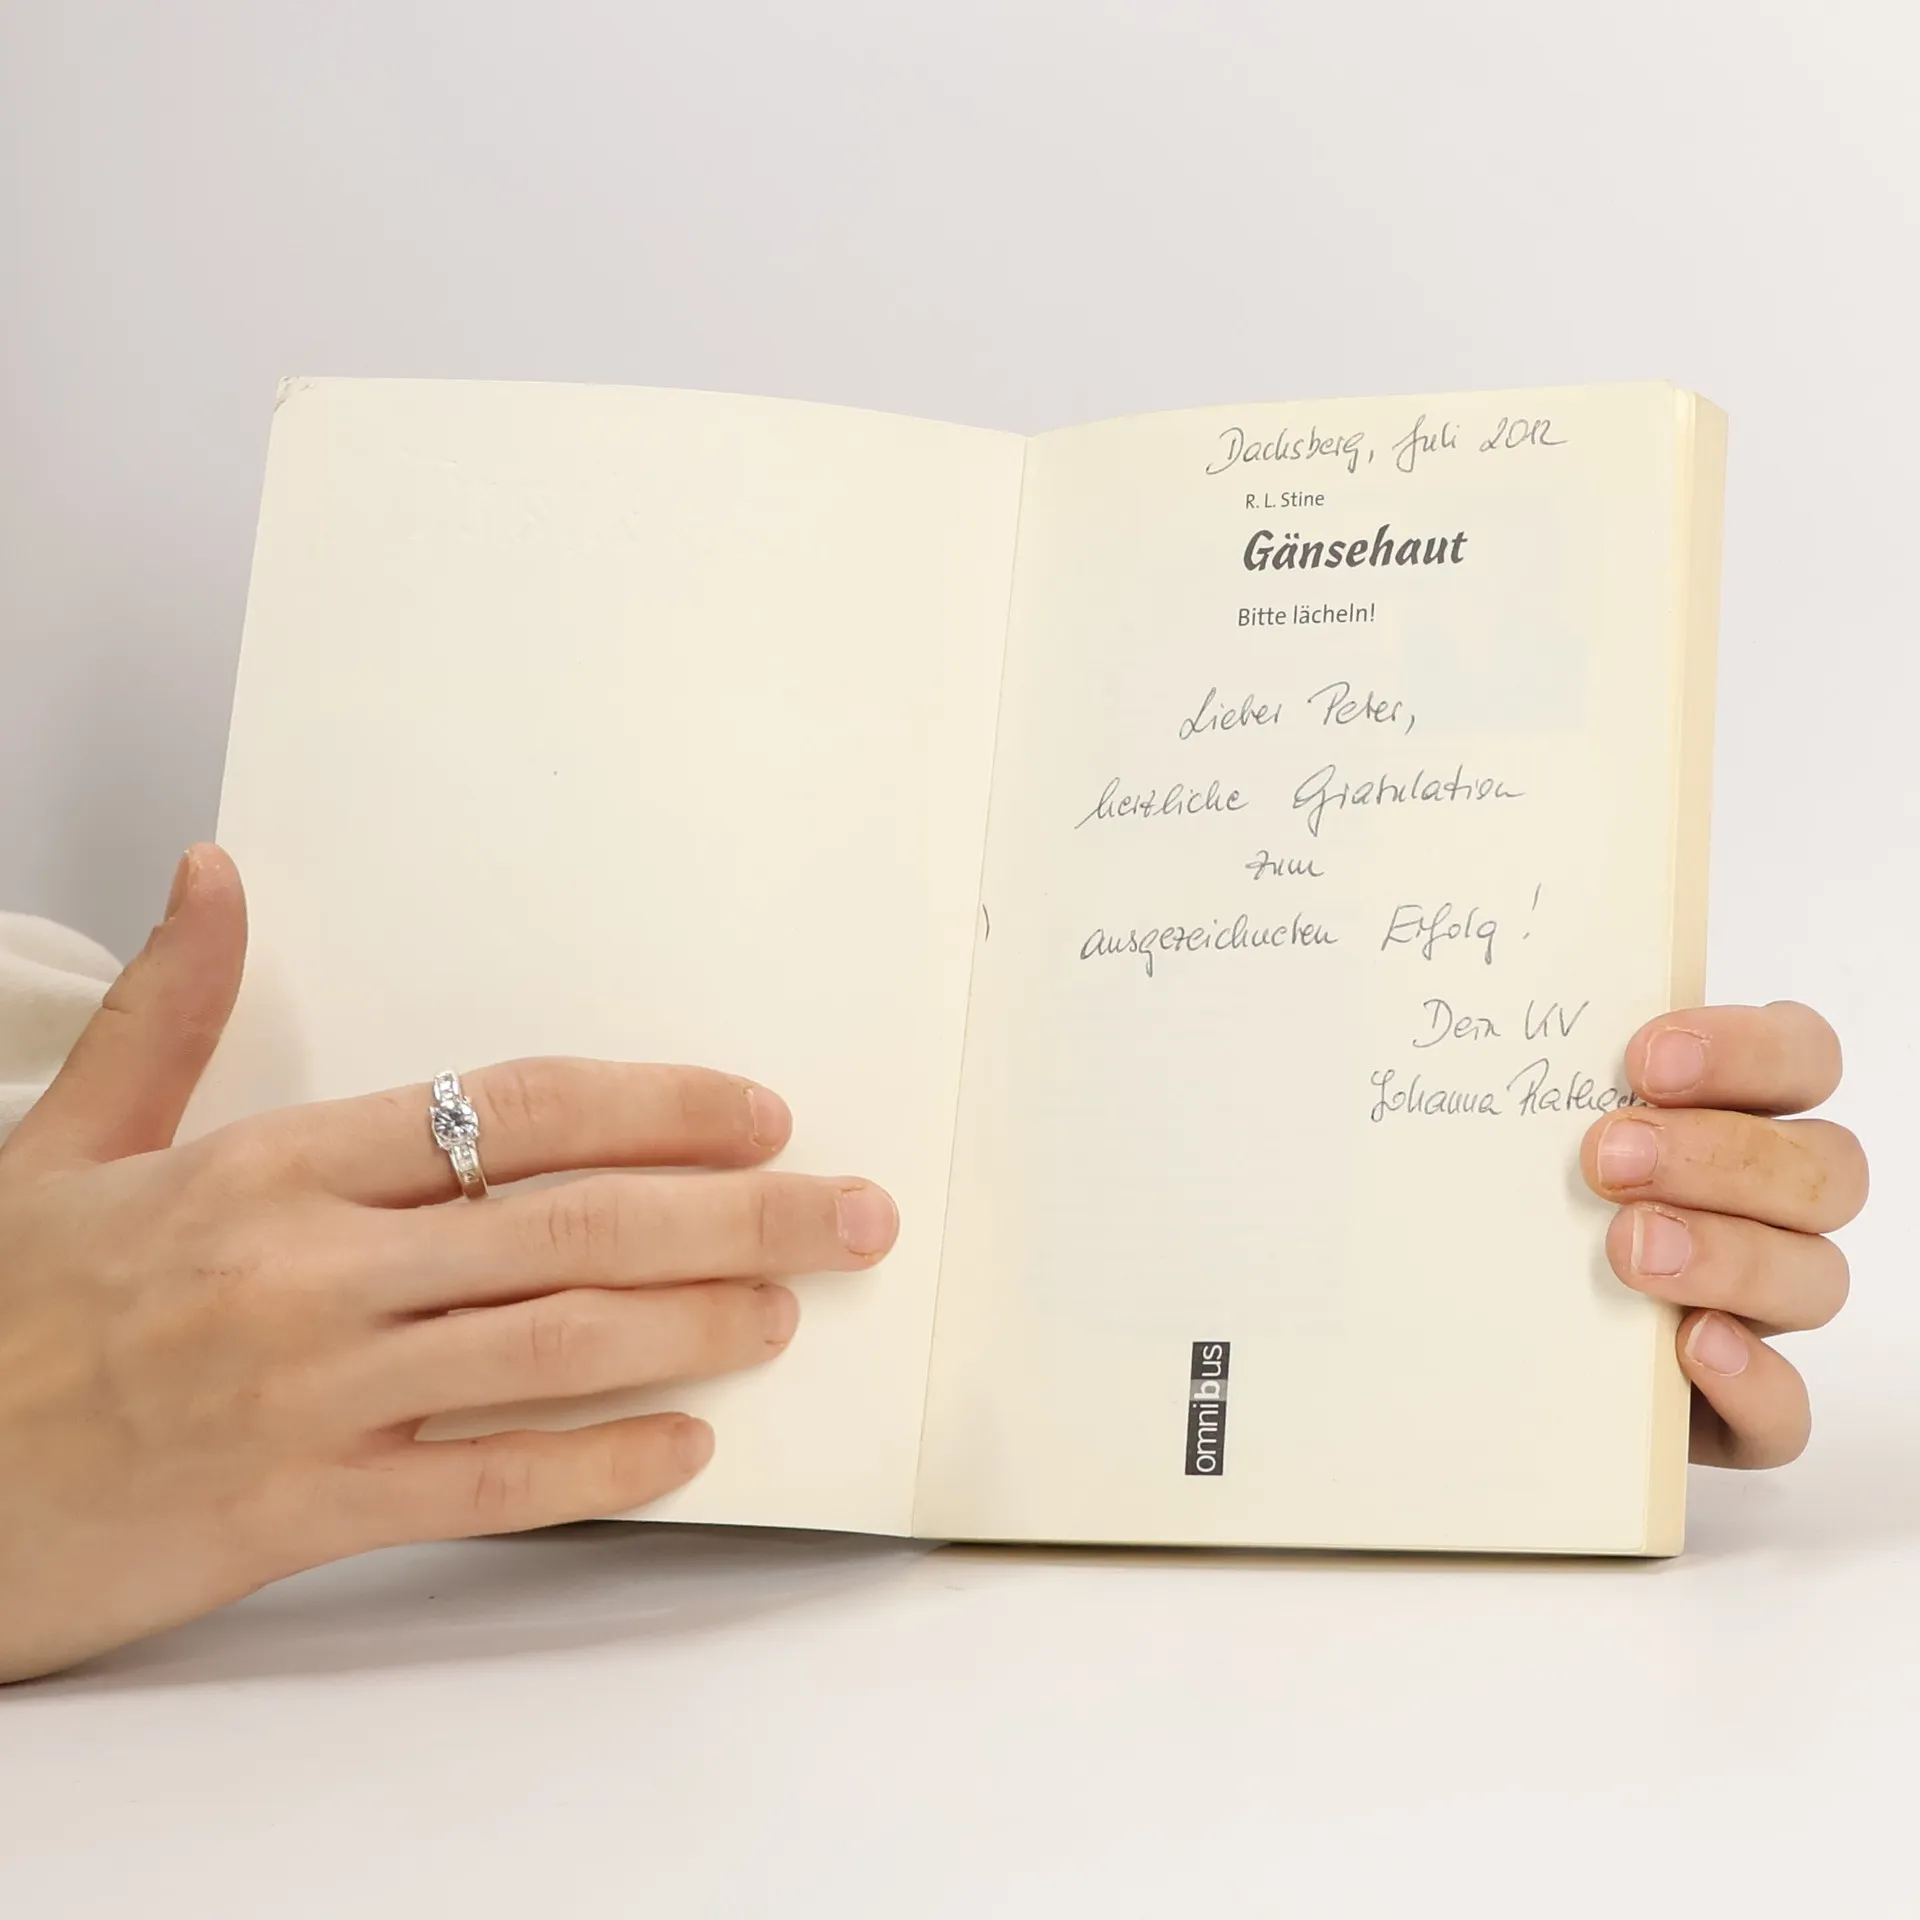 Dachsberg, Juli 2012
R. L. Stine
Gänsehaut
Bitte lächeln!
Lieber Peter,
herzliche Gratulation
zum
ausgezeichneten Erfolg!
Dein KV
Johanna
omnibus